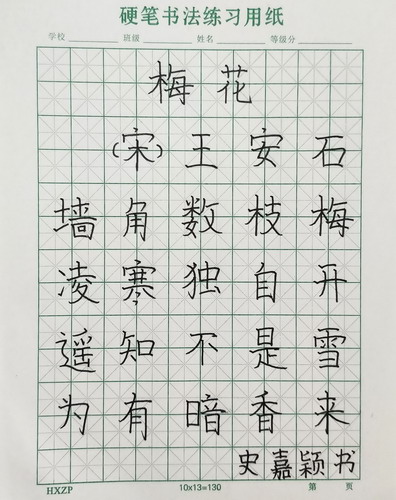 硬笔书法练习用纸
学校 班级 姓名 等级分
梅花
(宋)王安石
墙角数枝梅
凌寒独自开
遥知不是雪
为有暗香来
史嘉颖书
HXZP 10x13=130 第 页